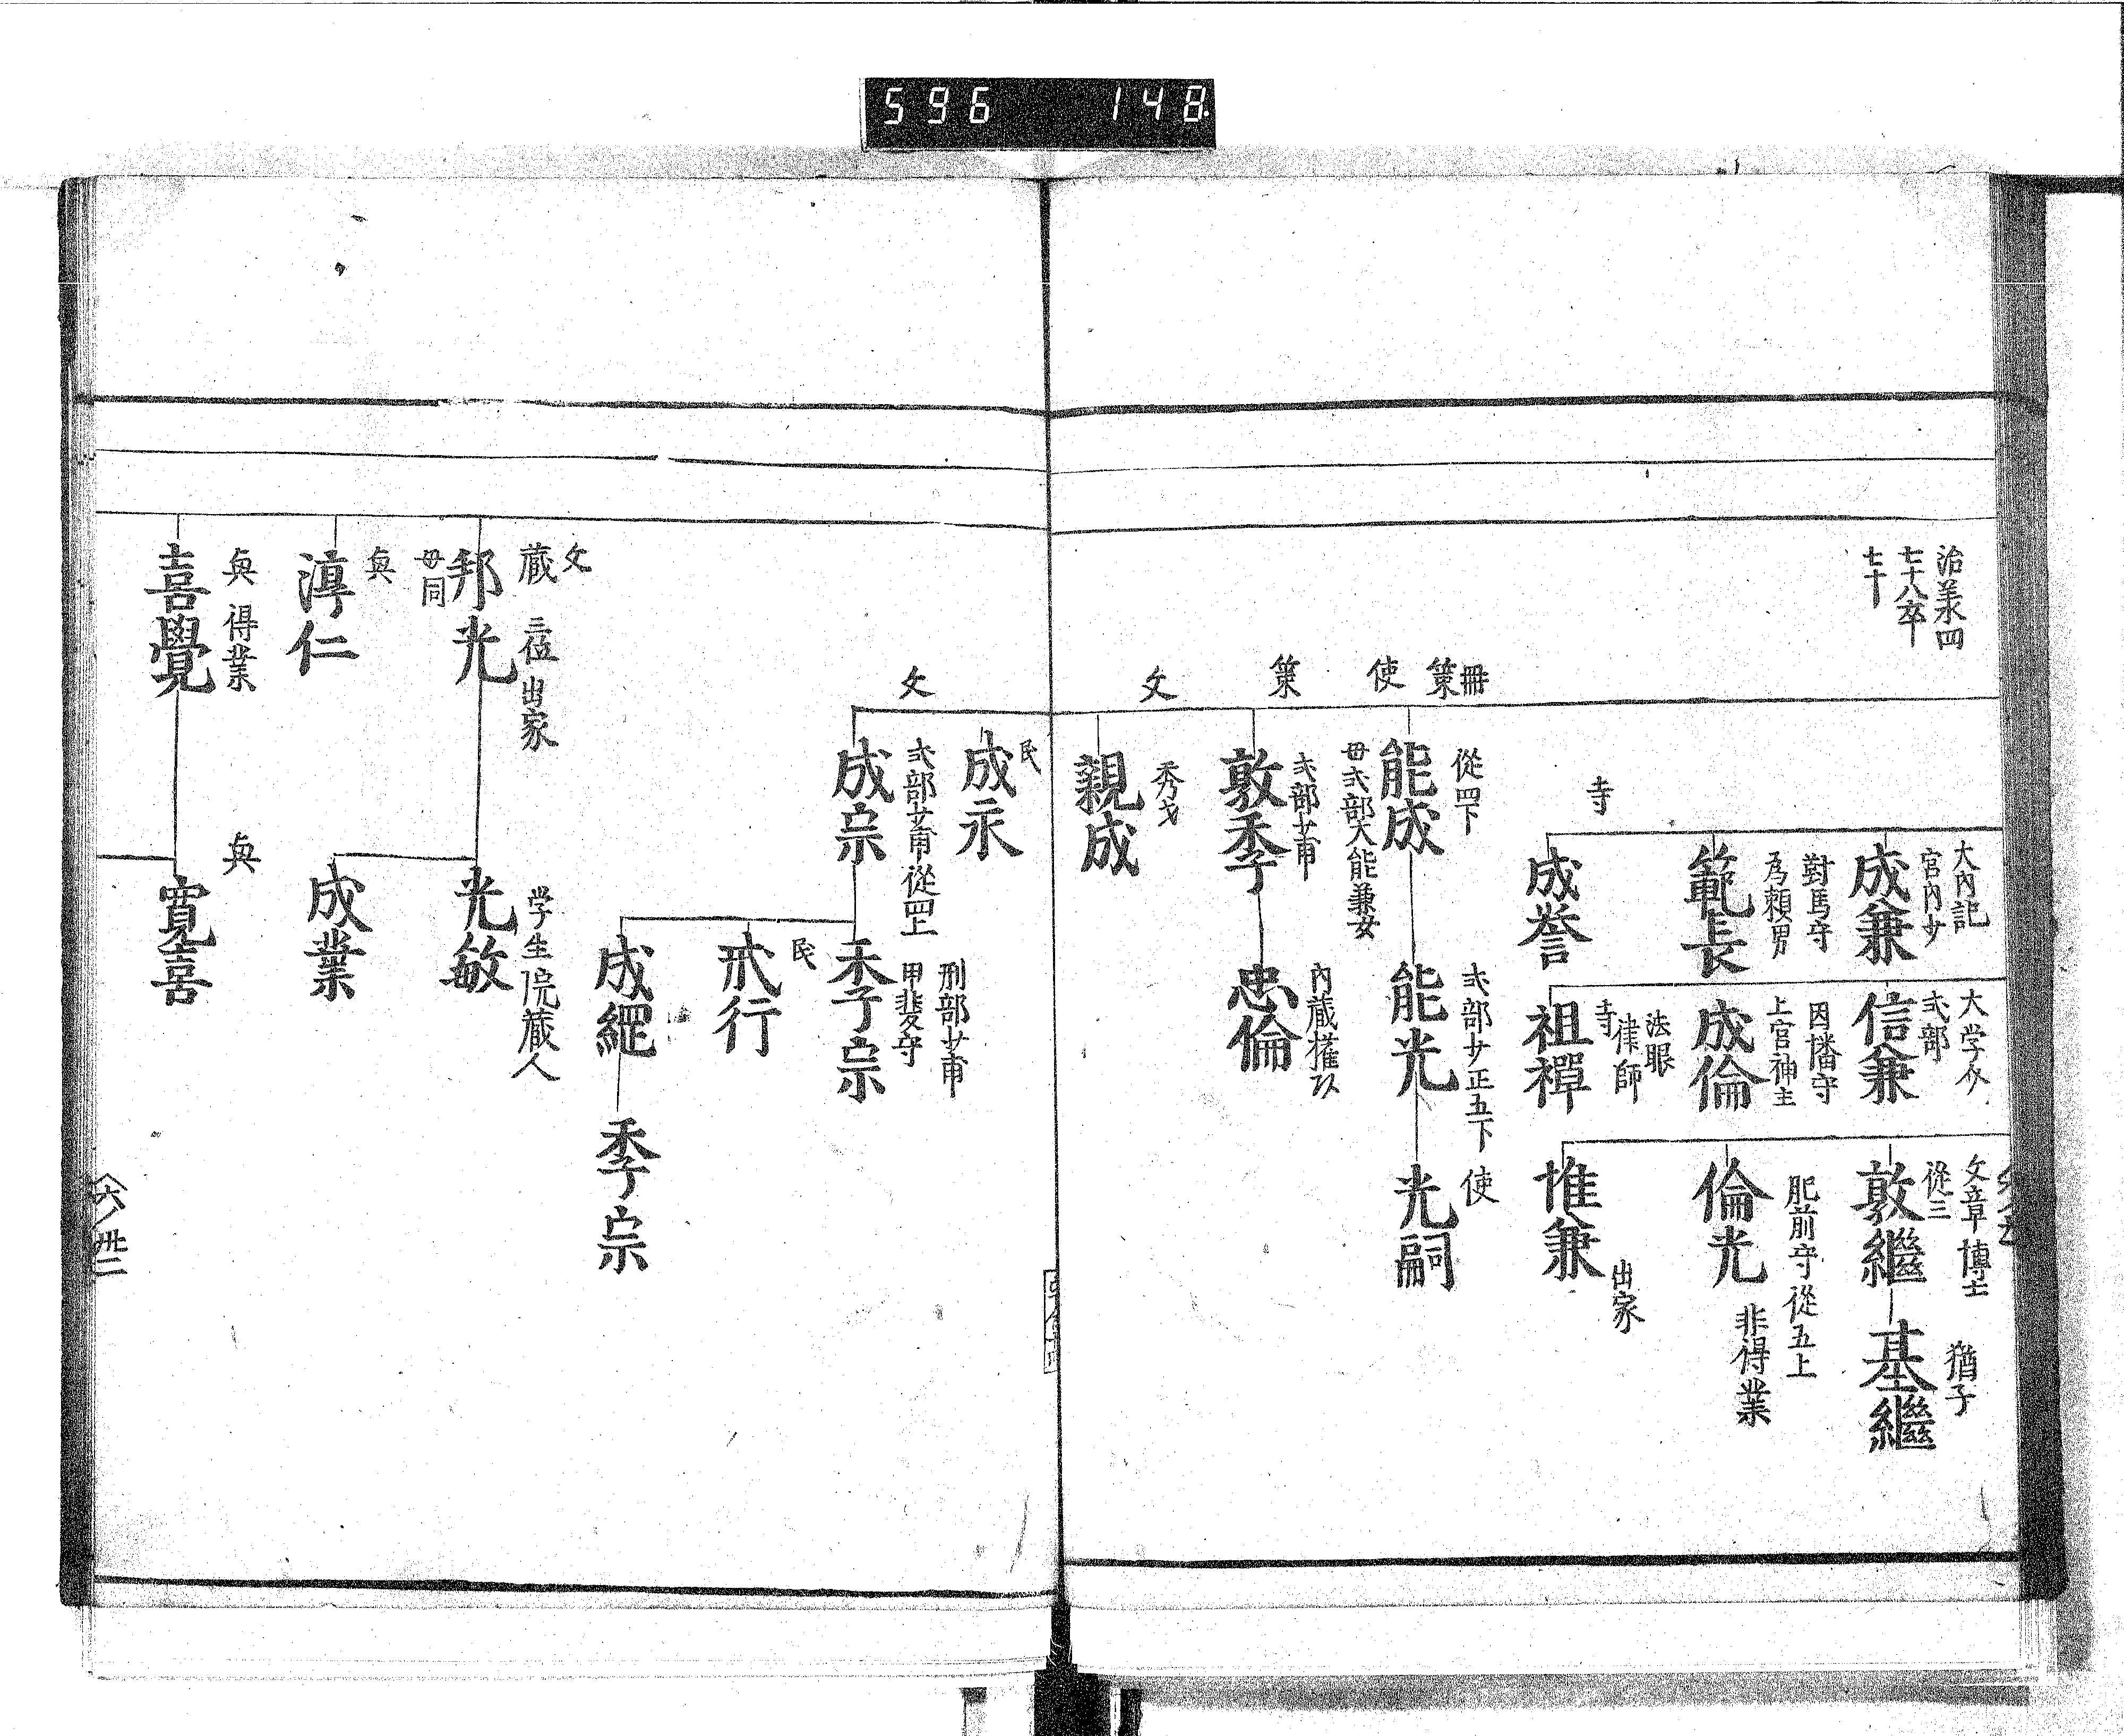 596 148
治承四
七十八卒
七十
大內記
宮內少
成兼
對馬守
為頼男
範長
寺
成誉
大学介
式部
信兼
因播守
上官神主
成倫
法眼
律師
寺
祖禪
文章博士
從三
敦繼
猶子
基繼
肥前守從五上
非得業
倫光
出家
惟兼
冊
策
使
從四下
能成
母式部大能兼女
式部少正五下
能光
使
光嗣
策
式部少甫
敦季
內蔵権以
忠倫
文
秀才
親成
民
成永
文
式部少甫從四上
成宗
刑部少甫
甲斐守
季宗
民
行
成繩
季宗
文
蔵 三位 出家
邦光
母同
学生院蔵人
光敏
成業
興
淳仁
興 得業
喜覺
興
寛喜
六ノ卅二